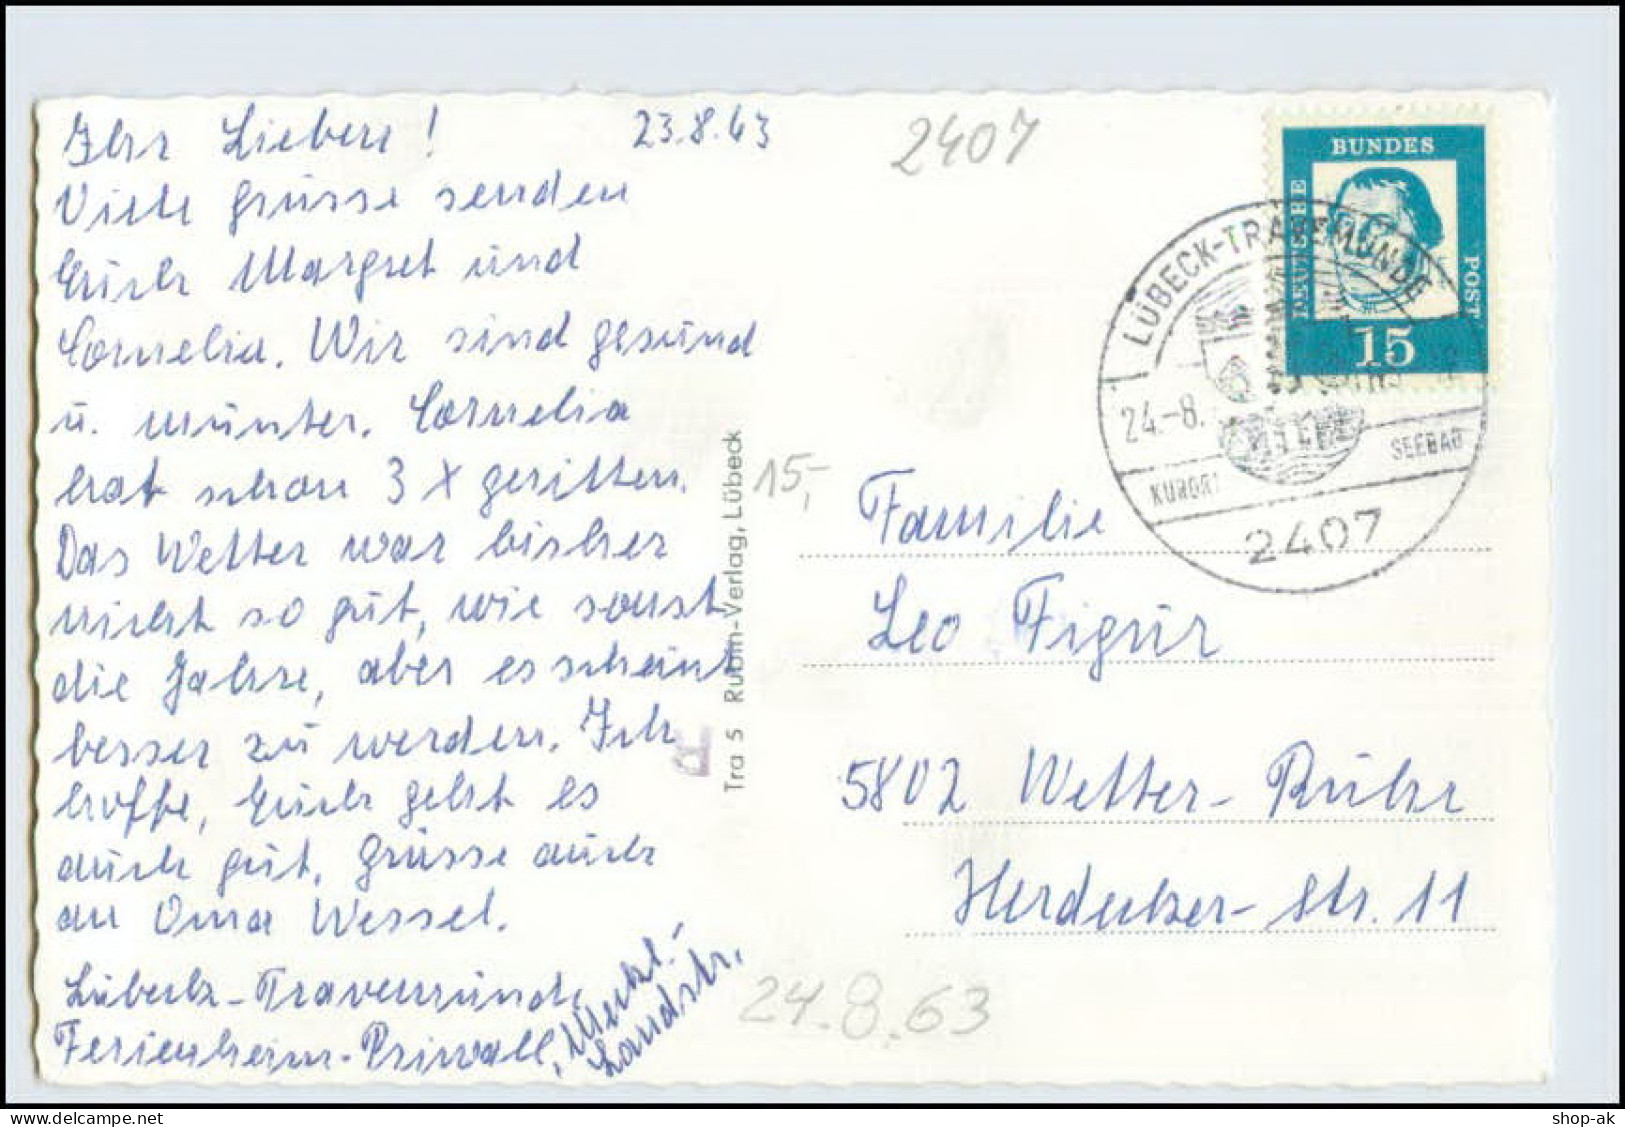 Ihr Lieben! 23.8.63
Viele Grüsse senden
Euch Margret und
Cornelia. Wir sind gesund
u. munter. Cornelia
hat schon 3 x geritten.
Das Wetter war bisher
nicht so gut, wie sonst
die Jahre, aber es scheint
besser zu werden. Ich
hoffe, Euch geht es
auch gut. Grüsse auch
an Oma Wessel.
Lübeck-Travemünde
Ferienheim-Priwall, Meckl.
Landstr.
2407
15,-
Tra 5 Rubin-Verlag, Lübeck
DEUTSCHE BUNDES POST
15
LÜBECK-TRAVEMÜNDE
24.-8.
KURORT SEEBAD
2407
Familie
Leo Figur
5802 Wetter-Ruhr
Herdecker-Str. 11
24.8.63
shop-ak